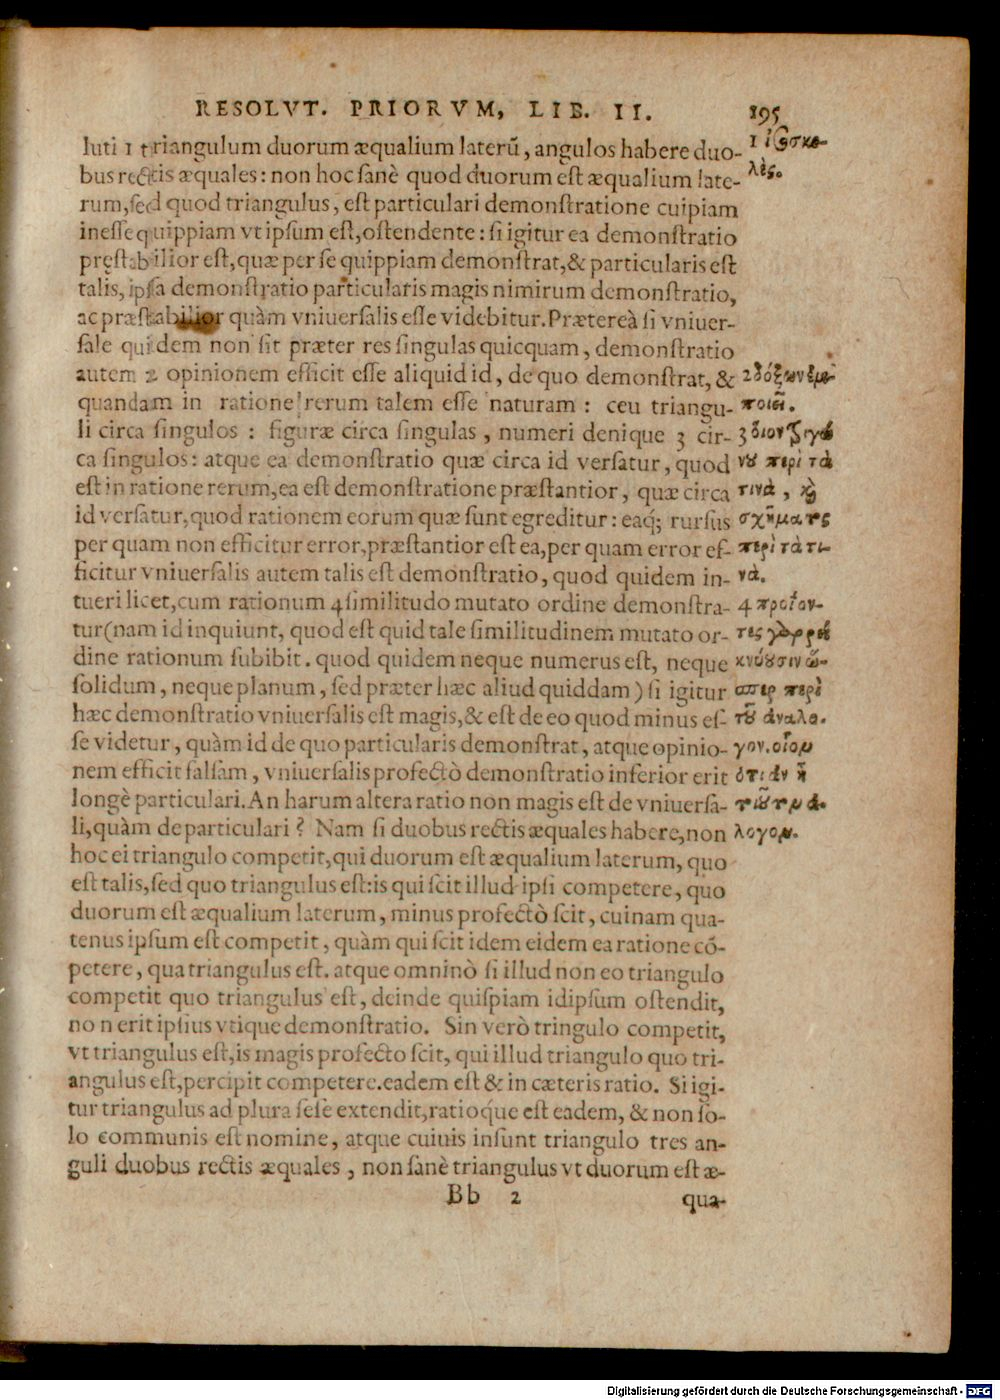 RESOLVT. PRIORVM, LIB. II. 195
luti 1 triangulum duorum æqualium laterũ, angulos habere duo-
bus rectis æquales: non hoc sanè quod duorum est æqualium late-
rum, sed quod triangulus, est particulari demonstratione cuipiam
inesse quippiam vt ipsum est, ostendente: si igitur ea demonstratio
pręstabilior est, quæ per se quippiam demonstrat, & particularis est
talis, ipsa demonstratio particularis magis nimirum demonstratio,
ac præstabilior quàm vniuersalis esse videbitur. Prætereà si vniuer-
sale quidem non sit præter res singulas quicquam, demonstratio
autem 2 opinionem efficit esse aliquid id, de quo demonstrat, &
quandam in ratione rerum talem esse naturam: ceu triangu-
li circa singulos: figuræ circa singulas, numeri denique 3 cir-
ca singulos: atque ea demonstratio quæ circa id versatur, quod
est in ratione rerum, ea est demonstratione præstantior, quæ circa
id versatur, quod rationem eorum quæ sunt egreditur: eaq; rursus
per quam non efficitur error, præstantior est ea, per quam error ef-
ficitur vniuersalis autem talis est demonstratio, quod quidem in-
tueri licet, cum rationum 4 similitudo mutato ordine demonstra-
tur (nam id inquiunt, quod est quid tale similitudinem mutato or-
dine rationum subibit. quod quidem neque numerus est, neque
solidum, neque planum, sed præter hæc aliud quiddam) si igitur
hæc demonstratio vniuersalis est magis, & est de eo quod minus es-
se videtur, quàm id de quo particularis demonstrat, atque opinio-
nem efficit falsam, vniuersalis profectò demonstratio inferior erit
longè particulari. An harum altera ratio non magis est de vniuersa-
li, quàm de particulari? Nam si duobus rectis æquales habere, non
hoc ei triangulo competit, qui duorum est æqualium laterum, quo
est talis, sed quo triangulus est: is qui scit illud ipsi competere, quo
duorum est æqualium laterum, minus profectò scit, cuinam qua-
tenus ipsum est competit, quàm qui scit idem eidem ea ratione cõ-
petere, qua triangulus est. atque omninò si illud non eo triangulo
competit quo triangulus est, deinde quispiam id ipsum ostendit,
no n erit ipsius vtique demonstratio. Sin verò tringulo competit,
vt triangulus est, is magis profecto scit, qui illud triangulo quo tri-
angulus est, percipit competere. eadem est & in cæteris ratio. Si igi-
tur triangulus ad plura sese extendit, ratioq́ue est eadem, & non so-
lo communis est nomine, atque cuiuis insunt triangulo tres an-
guli duobus rectis æquales, non sanè triangulus vt duorum est æ-
Bb 2 qua-
1 ἰσοσκε-
λὲς.
2 δόξαν ἐμ-
ποιεῖ.
3
περὶ τὰ
τινὰ,
σχήματος
περὶ τὰ τι-
νά.
4 προϊόν-
περὶ
τοῦ ἀναλό-
γον. οἷον
ὅτι ἂν ᾖ
λογον.
Digitalisierung gefördert durch die Deutsche Forschungsgemeinschaft - DFG